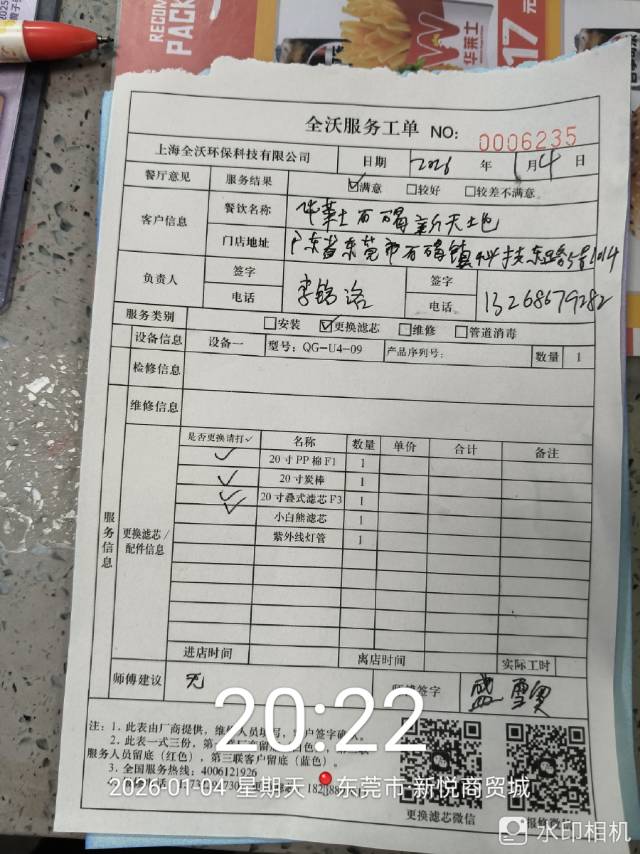 RECOM
PACK
华莱士
17元
2025
全沃服务工单 NO: 0006235
上海全沃环保科技有限公司 日期 2026 年 1 月 4 日
餐厅意见 服务结果 ☑满意 □较好 □较差不满意
客户信息 餐饮名称 华莱士石碣新天地
门店地址 广东省东莞市石碣镇科技东路5号1014
负责人 签字 签字
电话 电话 13268679282
服务类别 □安装 ☑更换滤芯 □维修 □管道消毒
设备信息 设备一 型号: QG-U4-09 产品序列号: 数量 1
检修信息
维修信息
服务信息
更换滤芯/配件信息
是否更换请打✓ 名称 数量 单价 合计 备注
✓ 20寸PP棉F1 1
✓ 20寸炭棒 1
✓ 20寸叠式滤芯F3 1
✓ 小白熊滤芯 1
紫外线灯管 1
进店时间 离店时间 实际工时
师傅建议 无 签字
20:22
注: 1. 此表由厂商提供, 维修人员填写, 客户签字确认。
2. 此表一式三份, 第一联厂家留底
服务人员留底（红色）, 第三联客户留底（蓝色）。
3. 全国服务热线: 4006121926
2026-01-04 星期天 东莞市·新悦商贸城
更换滤芯微信 报修微信
水印相机